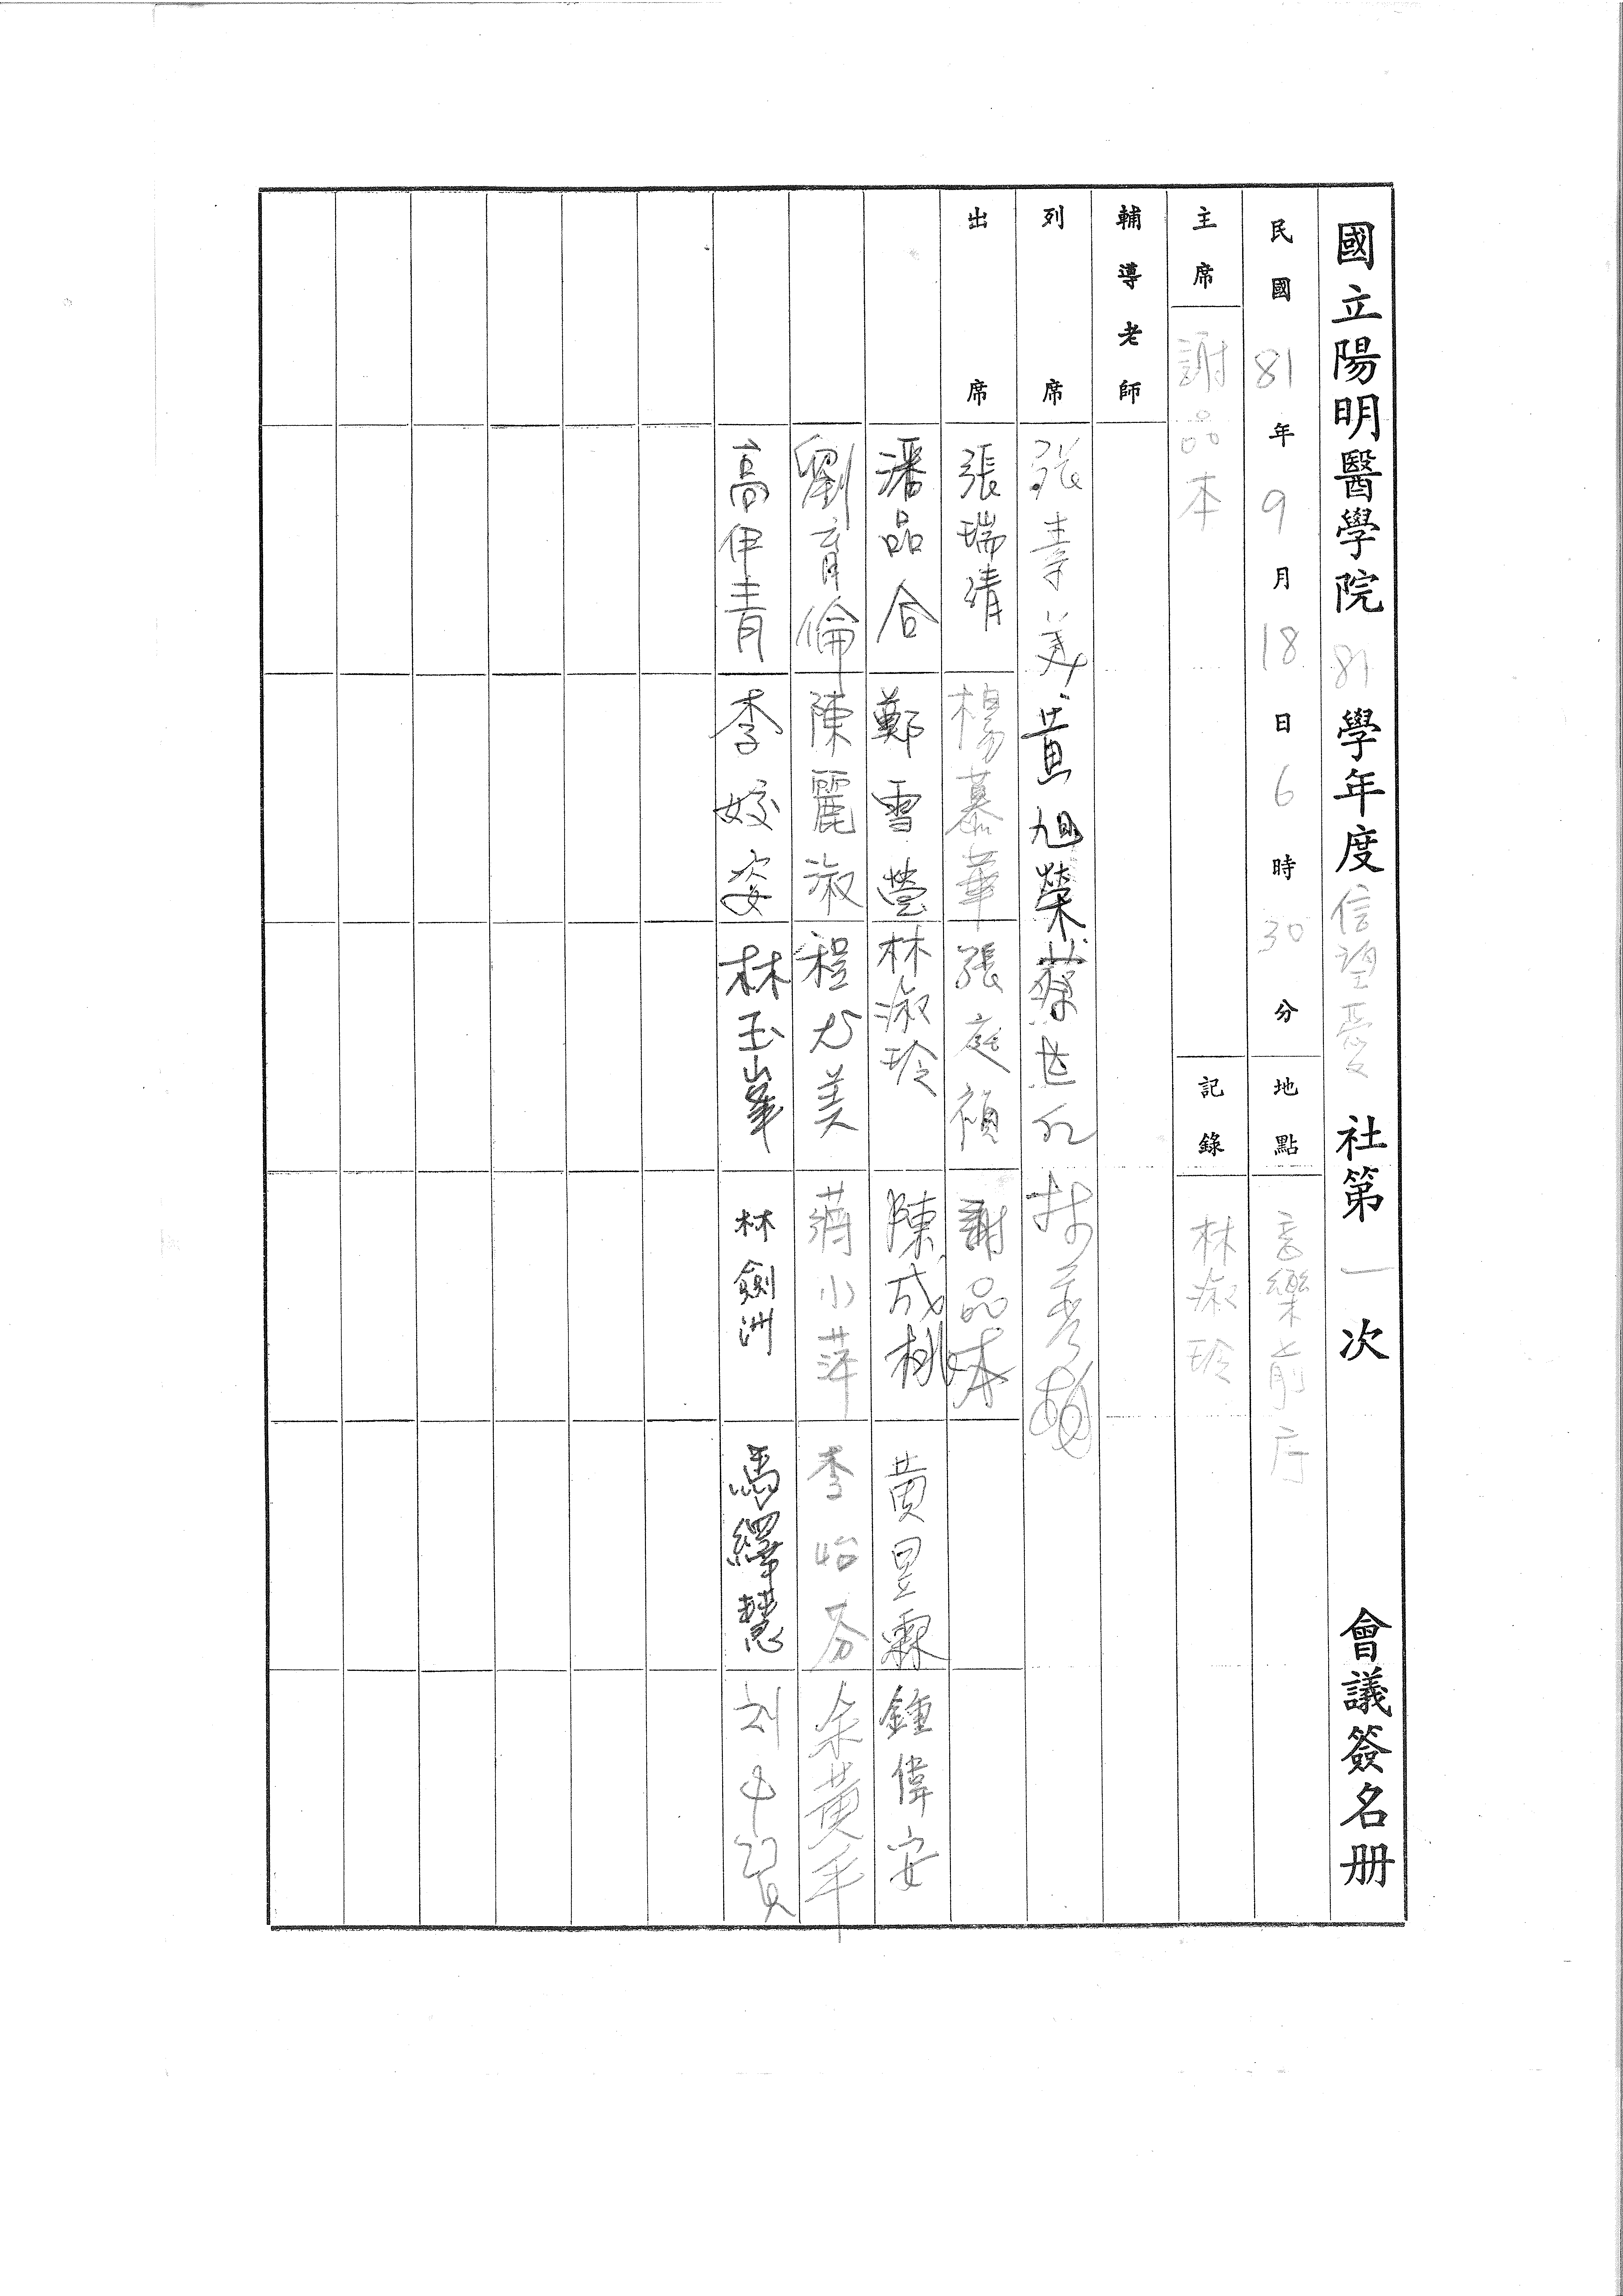 國立陽明醫學院 81 學年度 信望愛 社第 一 次 會議簽名册
民國 81 年 9 月 18 日 6 時 30 分 地點 音樂前庁
主席 謝品本 記錄 林淑玲
輔導老師
列席 張幸美 黃旭榮 蔡
出席 張瑞清 楊慕華 張庭禎 謝品本
潘品合 鄭雪瑩 林淑玲 陳成桃 黃昱霖 鍾偉安
劉育倫 陳麗淑 程尤美 蔣小萍 李怡芬 余黃平
高伊青 李姣姿 林玉峯 林劍洲 馬繹慧 刘